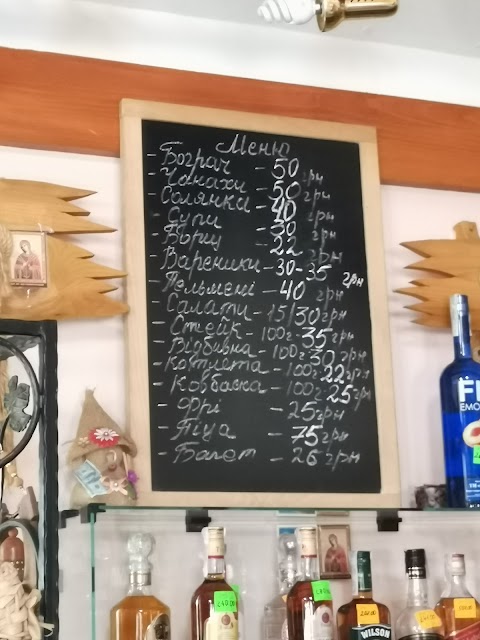 Меню
- Бограч - 50 грн
- Чанахи - 50 грн
- Солянка - 40 грн
- Супи - 30 грн
- Борщ - 22 грн
- Вареники - 30-35 грн
- Пельмені - 40 грн
- Салати - 15/30 грн
- Стейк - 100г - 35 грн
- Відбивна - 100г 30 грн
- Котлета - 100г - 22 грн
- Ковбаска - 100г - 25 грн
- Фрі - 25 грн
- Піца - 75 грн
- Багет - 26 грн
240.00
WILSON